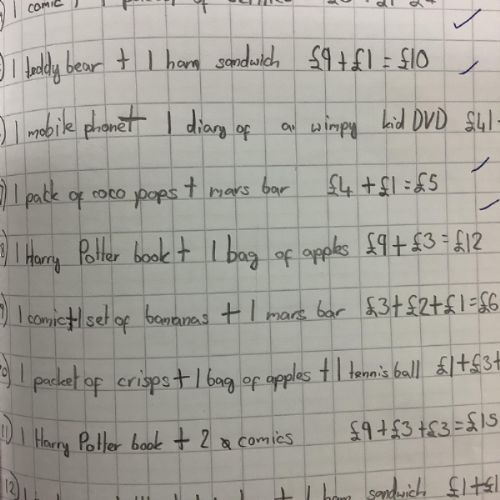 1 comic
1 teddy bear + 1 ham sandwich £9+£1=£10
1 mobile phone+ 1 diary of a wimpy kid DVD £41
) 1 pack of coco pops + mars bar £4+£1=£5
) 1 Harry Potter book + 1 bag of apples £9+£3=£12
) 1 comic+1 set of bananas + 1 mars bar £3+£2+£1=£6
) 1 packet of crisps + 1 bag of apples +1 tennis ball £1+£3+
11) 1 Harry Potter book + 2 comics £9+£3+£3=£15
12) + 1 ham sandwich £1+£1